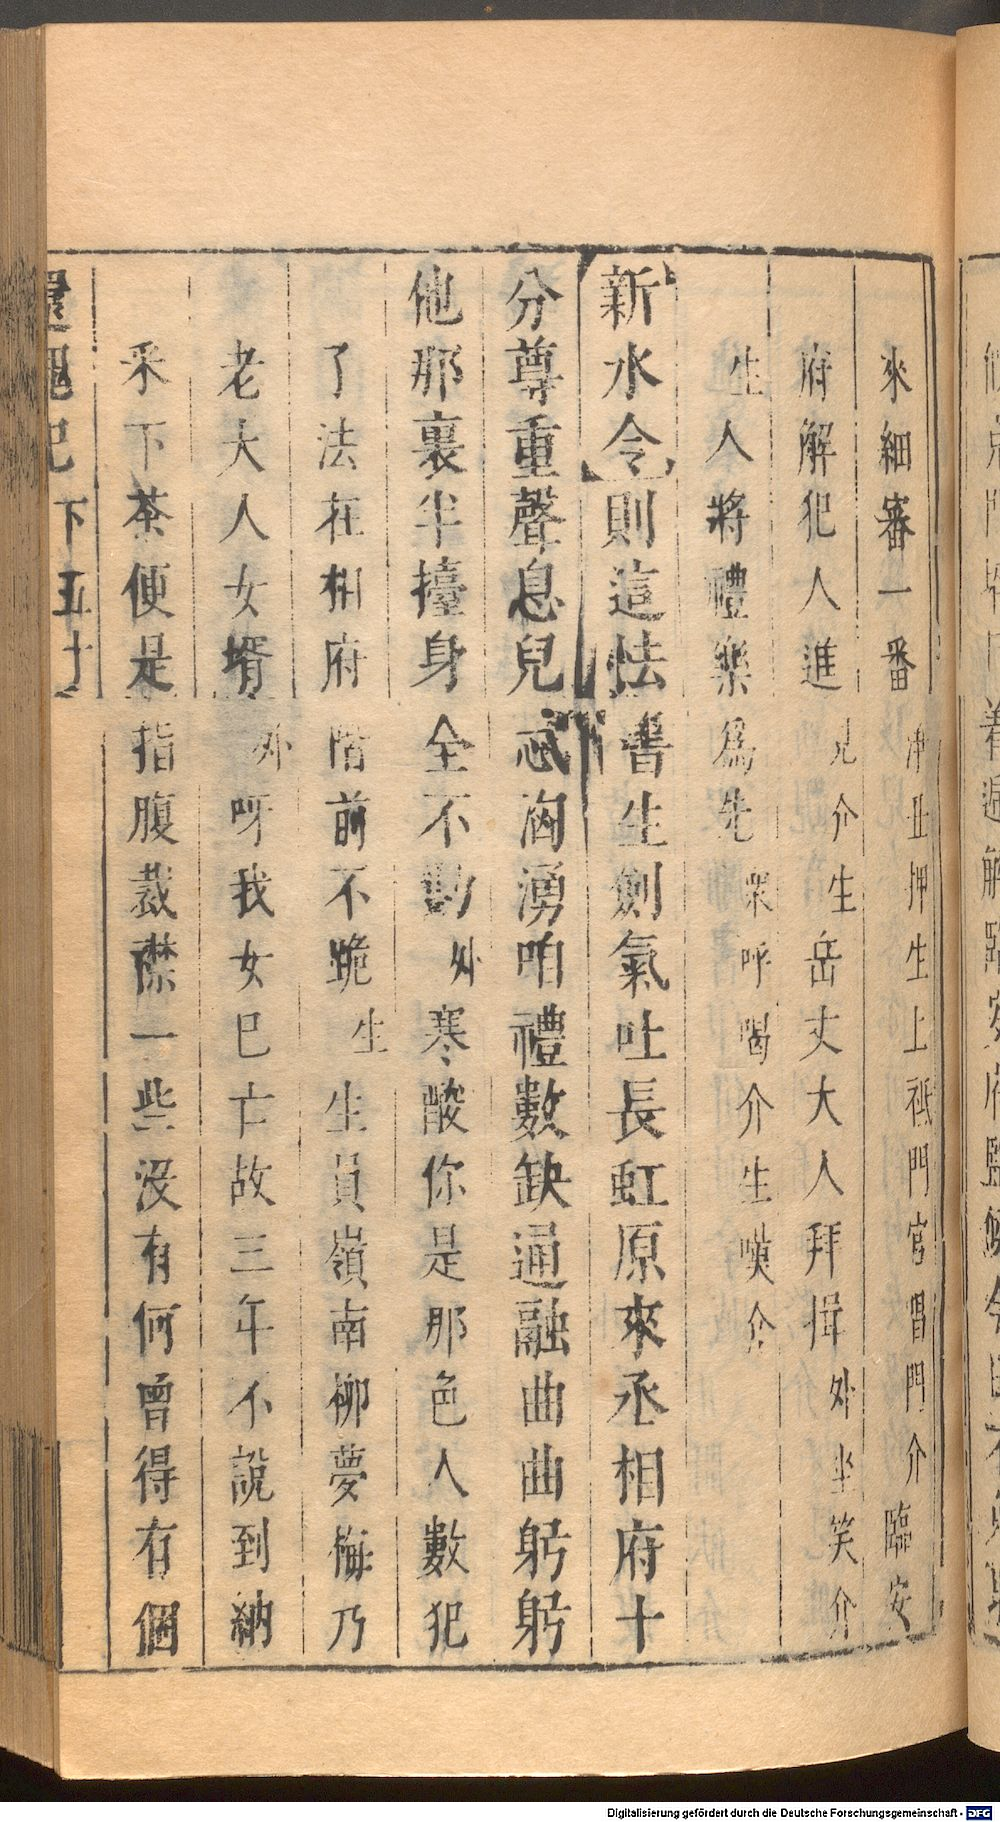 來細審一番淨丑押生上祗門官唱門介臨安
府解犯人進見介生岳丈大人拜揖外坐笑介
生人將禮樂為先眾呼喝介生嘆介
新水令則這怯書生劍氣吐長虹原來丞相府十
分尊重聲息兒忒洶湧咱禮數缺通融曲曲躬躬
他那裏半擡身全不動外寒酸你是那色人數犯
了法在相府階前不跪生生員嶺南柳夢梅乃
老大人女婿外呀我女已亡故三年不說到納
釆下茶便是指腹裁襟一些沒有何曾得有個
還魂記下五十
Digitalisierung gefördert durch die Deutsche Forschungsgemeinschaft - DFG